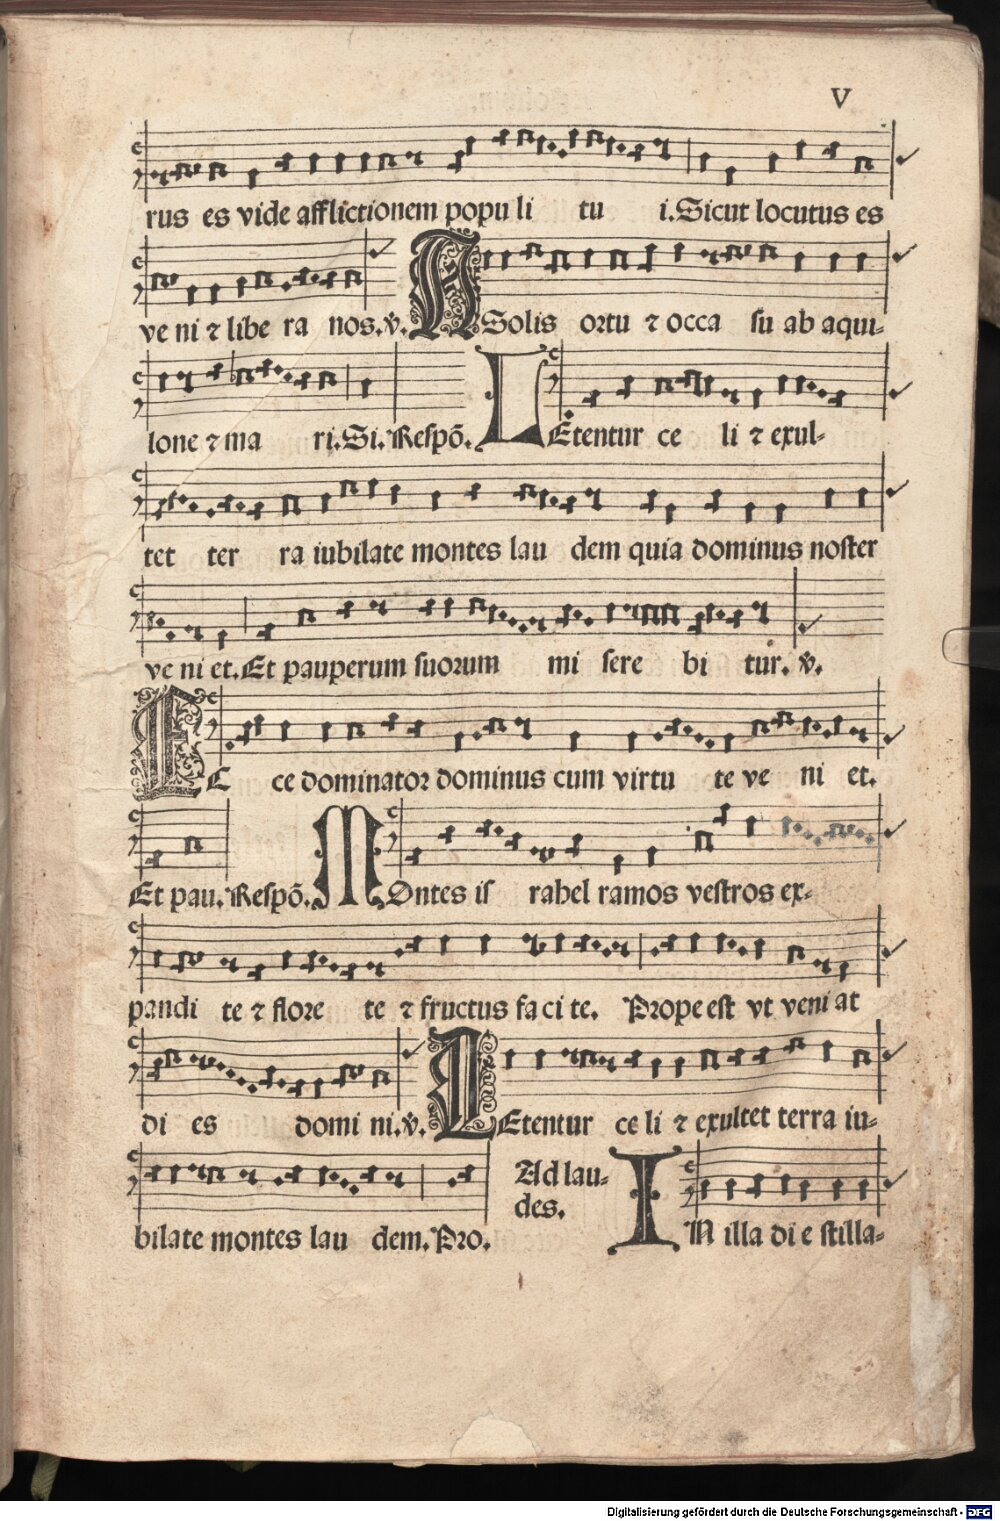 V
rus es vide afflictionem popu li tu i. Sicut locutus es
ve ni ⁊ libe ra nos. v̓. A Solis ortu ⁊ occa su ab aqui-
lone ⁊ ma ri. Si. Respõ. LEtentur ce li ⁊ exul-
tet ter ra iubilate montes lau dem quia dominus noster
ve ni et. Et pauperum suorum mi sere bi tur. v̓.
EC ce dominator dominus cum virtu te ve ni et.
Et pau. Respõ. MOntes is rahel ramos vestros ex-
pandi te ⁊ flore te ⁊ fructus fa ci te. Prope est vt veni at
di es domi ni. v̓. LEtentur ce li ⁊ exultet terra iu-
bilate montes lau dem. Pro.
Ad lau-
des.
IN illa di e stilla-
Digitalisierung gefördert durch die Deutsche Forschungsgemeinschaft - DFG